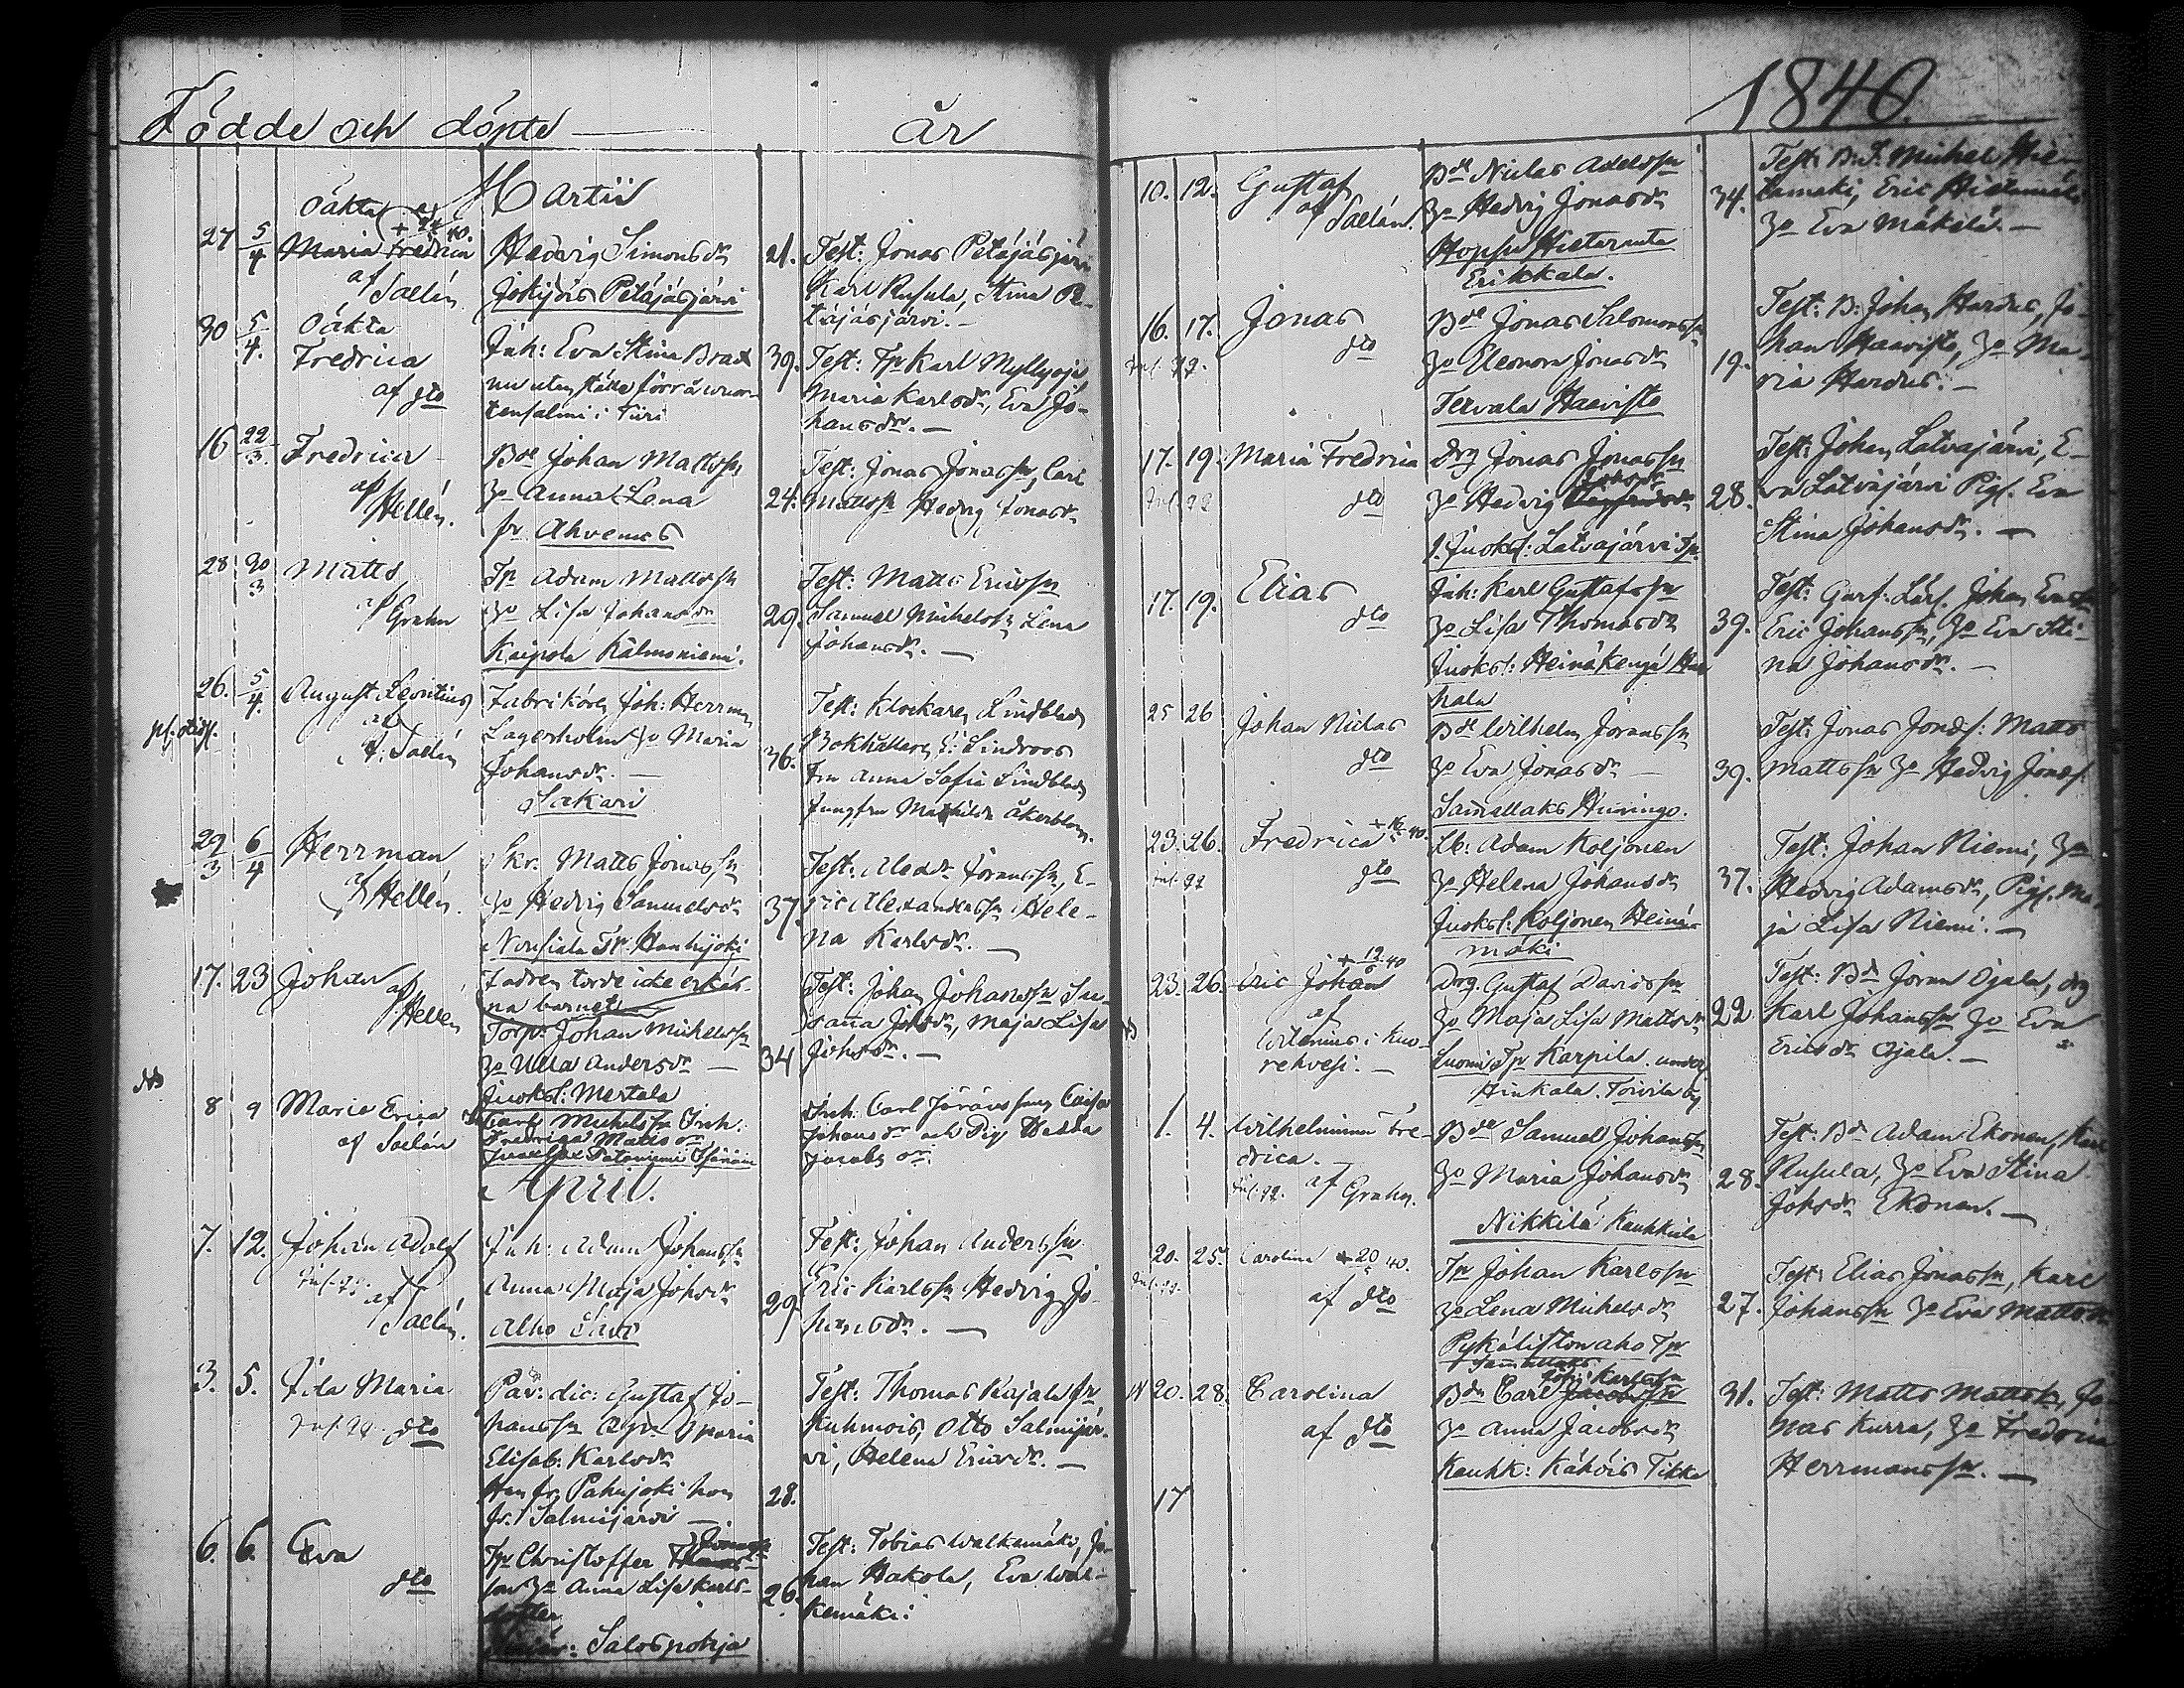 Födde och döpte — år
Martii
27 5/4 Oäkta Maria Fredrica af Saelén
Hedvig Simonsdr
Jokijäis Petäjäsjärvi
21. Test: Jonas Petäjäsjärvi
Karl Rusula, Stina Pe-
täjäsjärvi. —
30 5/4. Oäkta
Fredrica
af dto
Inh: Eva Stina
39. Test: Tp Karl Myllyoja
Maria Karlsdr, Eva Jo-
hansdr. —
16 22/3. Fredrica
af Hellén.
Bde Johan Mattssn
Ho Anna Lena
fr Ahvenus
24. Test: Jonas Jonassn, Carl
Mattssn Hedvig Jonasdr
28 30/3 Matts
af Grahn
Tp Adam Mattssn
Ho Lisa Johansdr
Kaipola Kälmäniemi.
29. Test: Matts Ericssn
Samuel Michelssn, Lena
Johansdr. —
26. 5/4. August Leontius
af Saelén
Fabrikören Joh: Herrman
Lagerholm Ho Maria
Johansdr. —
Sakari
36. Test: Klockaren Lindblad
Bokhållaren E: Lindroos
Fru Anna Sofia Lindblad
Jungfru Mathilda Åkerblom.
29/3 6/4 Herrman
af Hellén.
Skr. Matts Jonassn
Ho Hedvig Samuelsdr
Tp. Hanhijoki
37. Test: Alexdr Göranssn, E-
ric Alexanderssn Hele-
na Karlsdr. —
17. 23 Johan
af Hellén
Fadren torde icke erkän-
na barnet
Torp: Johan Michelssn
Ho Ulla Andersdr —
Juoksl: Mertala
34 Test: Johan Johanssn Su-
sanna Johsdr, Maja Lisa
Johsdr. —
8 9 Maria Erica
af Saelén
Carl Michelssn Inh.
Fredrica Mattsdr
Inh. Carl Göransson Caisa
Johansdr och Pig Hedda
Jacobsdr.
April.
7. 12. Johan Adolf
af Saelén.
Inh: Adam Johanssn
Anna Maja Johsdr
Alho
29 Test: Johan Anderssn
Eric Karlssn Hedvig Jo-
hansdr. —
3. 5. Ida Maria
dto
Gustaf Jo-
hanssn Maria
Elisab: Karlsdr
Han fr. Pahijoki hon
fr. Salmijärvi —
28. Test: Thomas Kajala fr,
Kuhmois, Otto Salmijär-
vi, Helena Ericsdr. —
6. 6. Eva
dto
Tp Christoffer
son Ho Anna Lisa Karls-
dotter
Salospohja
26. Test: Tobias Walkamäki, Jo-
han Hakola, Eva Wal-
kemäki:
1840.
10. 12. Gustaf
af Saelén.
Bde Niclas Adelssn
Ho Hedvig Jonasdr
Hopsu Hietaranta
Erikkala.
34. Test: B.d. Michel Hie-
tamäki, Eric Hietamäki
Ho Eva Mäkelä. —
16. 17. Jonas
dto
Bde Jonas Salomonssn
Ho Eleonora Jonasdr
Tervala Haavisto
19. Test: B: Johan Hardus, Jo-
han Haavisto, Ho Ma-
ria Hardus. —
17. 19. Maria Fredrica
dto
Drg Jonas Jonassn
Ho Hedvig
Juoksl: Latvajärvi Tp.
28. Test: Johan Latvajärvi, E-
va Latvajärvi Pigs. Eva
Stina Johansdr. —
17. 19. Elias
dto
Inh: Karl Gustafssn
Ho Lisa Thomasdr
Juoksl: Heinäkengä
39. Test: Garf: Lärl. Johan
Eric Johanssn, Ho Eva Sti-
na Johansdr. —
25 26 Johan Niclas
dto
Bde Wilhelm Göranssn
Ho Eva Jonasdr —
Sammallaks Huningo.
39. Test: Jonas Jonas: Matts
Mattssn Ho Hedvig Jonas:
23. 26. Fredrica
dto
Lb: Adam Koljonen
Ho Helena Johansdr
Juoksl: Koljonen Heinä-
mäki
37. Test: Johan Niemi, Ho
Hedvig Adamsdr, Pigs. Ma-
ja Lisa Niemi. —
23. 26. Eric Johan
af Wilenius i Kuo-
rehvesi. —
Drg. Gustaf Davidssn
Ho Maja Lisa Mattsdr
Luomi Tp Karpila under
Hinkala Toivila by
22 Test: Bd Jöran Ojala, drg
Karl Johanssn Ho Eva
Ericsdr Ojala. —
1. 4. Wilhelmina Fre-
drica.
af Grahn.
Bde Samuel Johanssn
Ho Maria Johansdr
Nikkilä Kauhkiala
28. Test: Bd Adam Ekonen, Karl
Rusula, Ho Eva Stina
Johsdr Ekonen. —
20. 25. Carolina + 20/5 40.
af dto
Tp Johan Karlssn
Ho Lena Michelsdr
Tp
27. Test: Elias Jonassn, Karl
Johanssn Ho Eva Mattsdr
20. 28. Carolina
af dto
Bdn Carl
Ho Anna Jacobsdr
Kauhk: Kähöis Tikka
31. Test: Matts Mattssn, Jo-
nas Kurra, Ho Fredrica
Herrmanssn. —
17